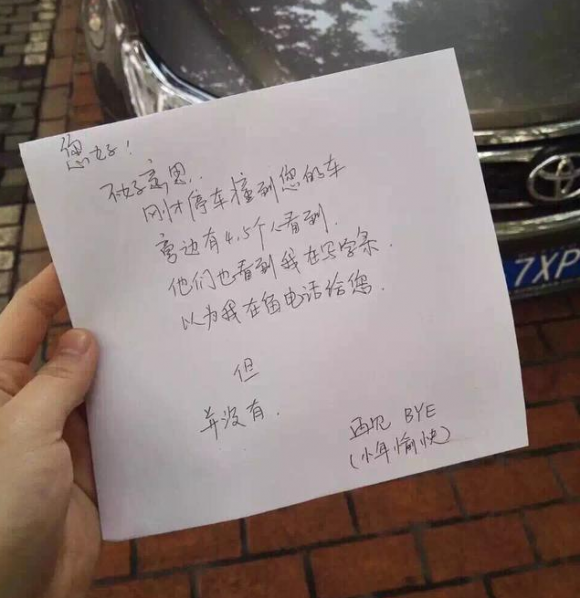 您好！
不好意思..
刚才停车撞到您的车
旁边有4.5个人看到.
他们也看到我在写字条.
以为我在留电话给您.
但
并没有.
再见 BYE
(小年愉快)
7XP